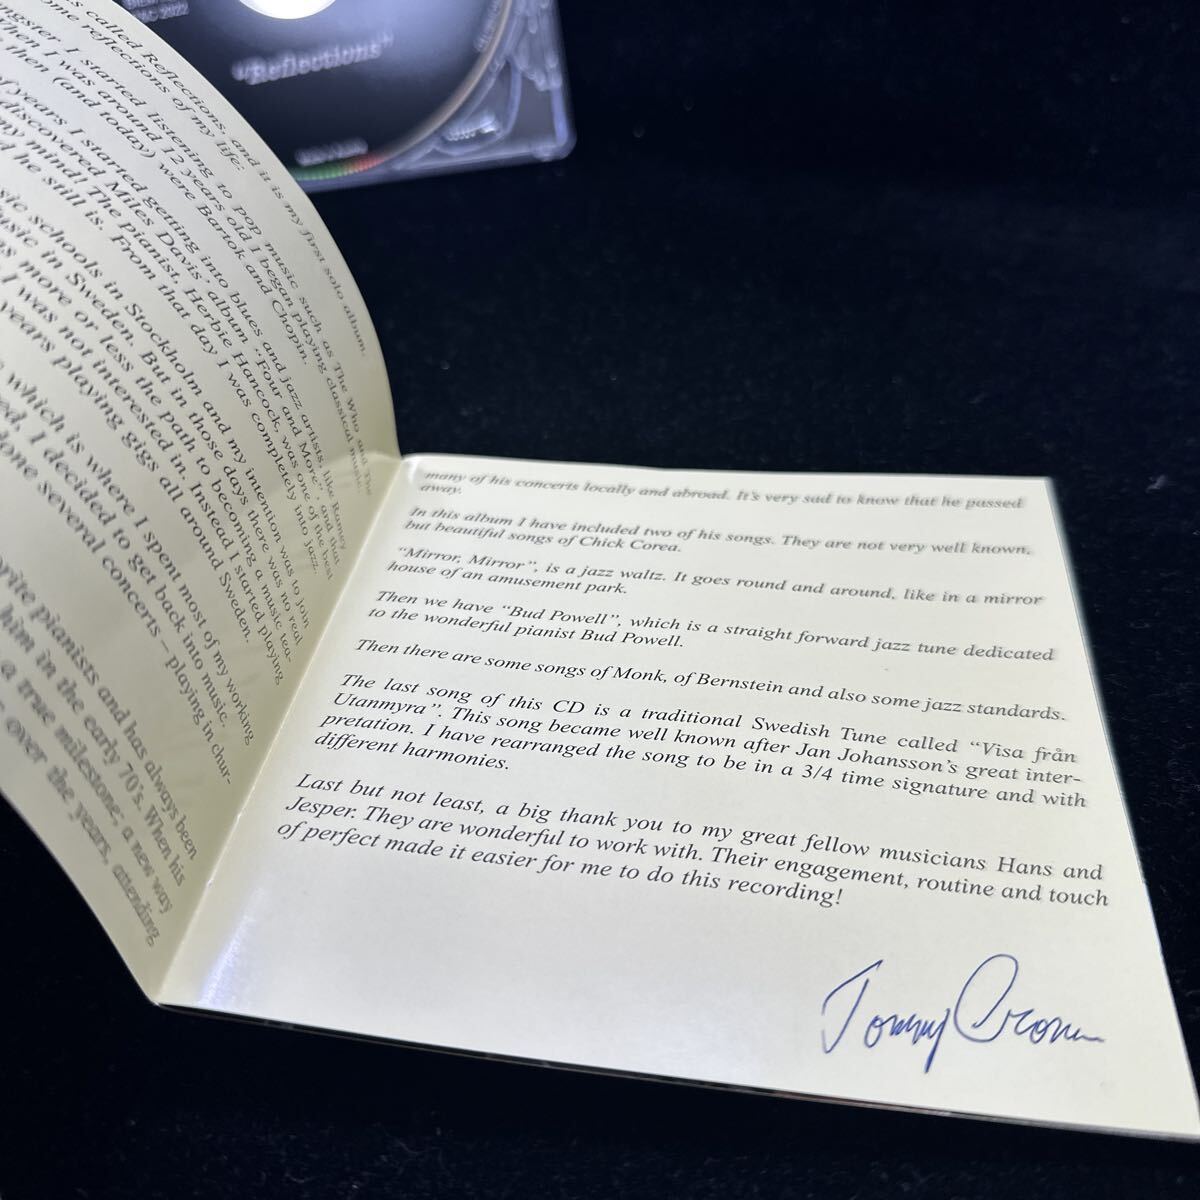 2022
"Reflections"
s called Reflections, and it is my first solo album.
ome reflections of my life:
ngster I started listening to pop music such as The Who and The
When I was around 12 years old I began playing classical music.
then (and today) were Bartok and Chopin.
f years I started getting into blues and jazz artists, like Ramsey
discovered Miles Davis' album "Four and More", and that
my mind! The pianist, Herbie Hancock, was one of the best
d he still is. From that day I was completely into jazz.
sic schools in Stockholm and my intention was to join
usic in Sweden. But in those days there was no real
as more or less the path to becoming a music tea-
I was not interested in. Instead I started playing
years playing gigs all around Sweden.
which is where I spent most of my working
ed, I decided to get back into music.
done several concerts – playing in chur-
orite pianists and has always been
him in the early 70's. When his
a true milestone; a new way
over the years, attending
many of his concerts locally and abroad. It's very sad to know that he passed
away.
In this album I have included two of his songs. They are not very well known,
but beautiful songs of Chick Corea.
"Mirror, Mirror", is a jazz waltz. It goes round and around, like in a mirror
house of an amusement park.
Then we have "Bud Powell", which is a straight forward jazz tune dedicated
to the wonderful pianist Bud Powell.
Then there are some songs of Monk, of Bernstein and also some jazz standards.
The last song of this CD is a traditional Swedish Tune called "Visa från
Utanmyra". This song became well known after Jan Johansson's great inter-
pretation. I have rearranged the song to be in a 3/4 time signature and with
different harmonies.
Last but not least, a big thank you to my great fellow musicians Hans and
Jesper. They are wonderful to work with. Their engagement, routine and touch
of perfect made it easier for me to do this recording!
Tommy